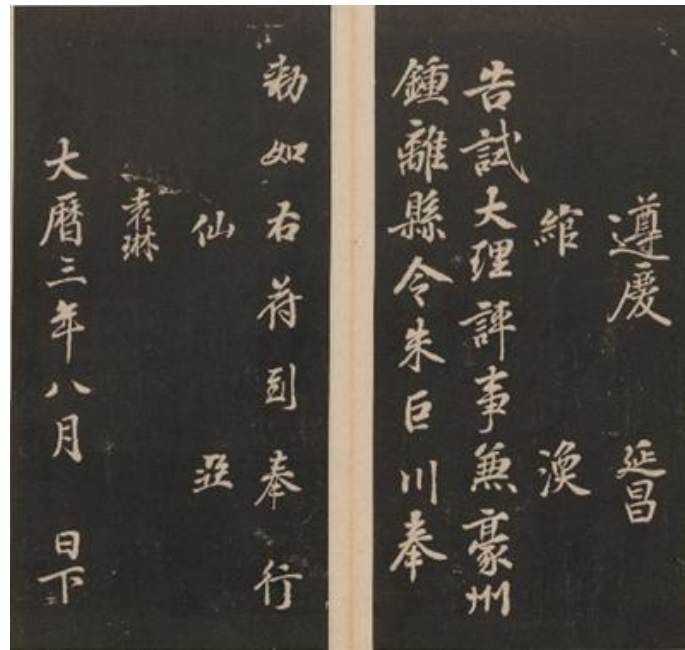 遵慶 延昌
綰 渙
告試大理評事兼豪州
鍾離縣令朱巨川奉
勑如右苻到奉行
仙 亞
袁琳
大曆三年八月 日下